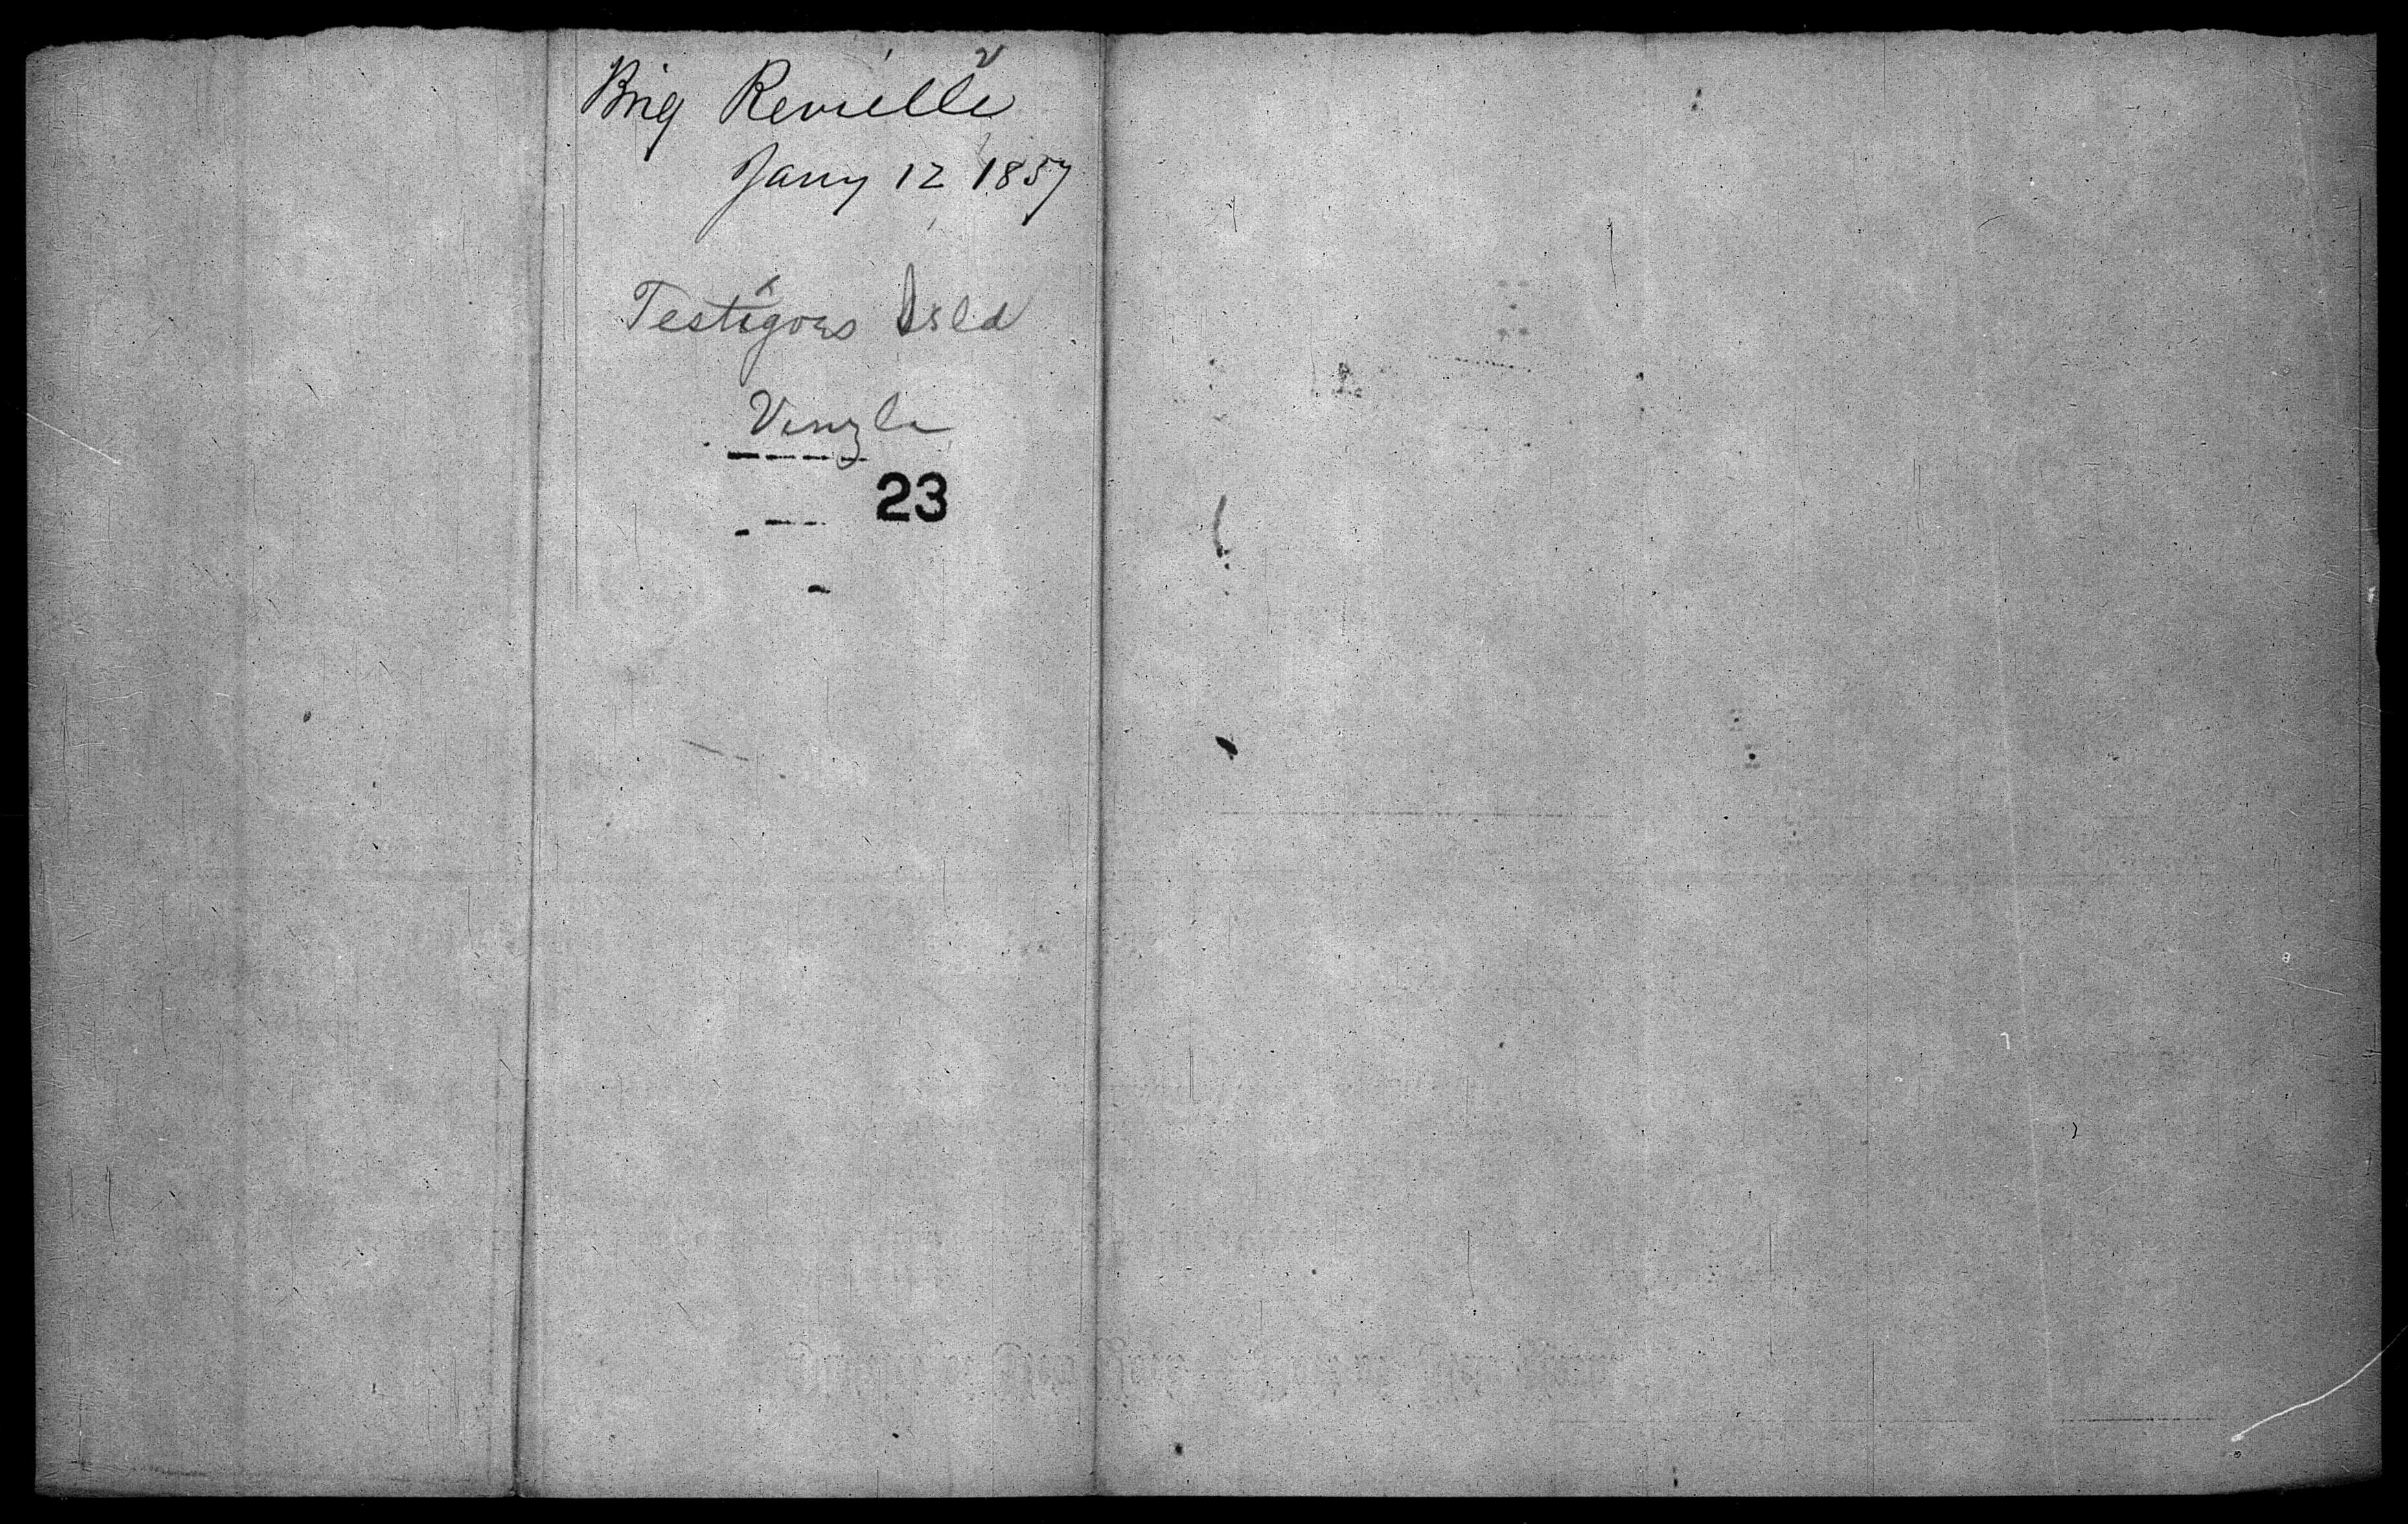 Brig Revielle
Jany 12 1857
Testigoes Isld
Venzla
23